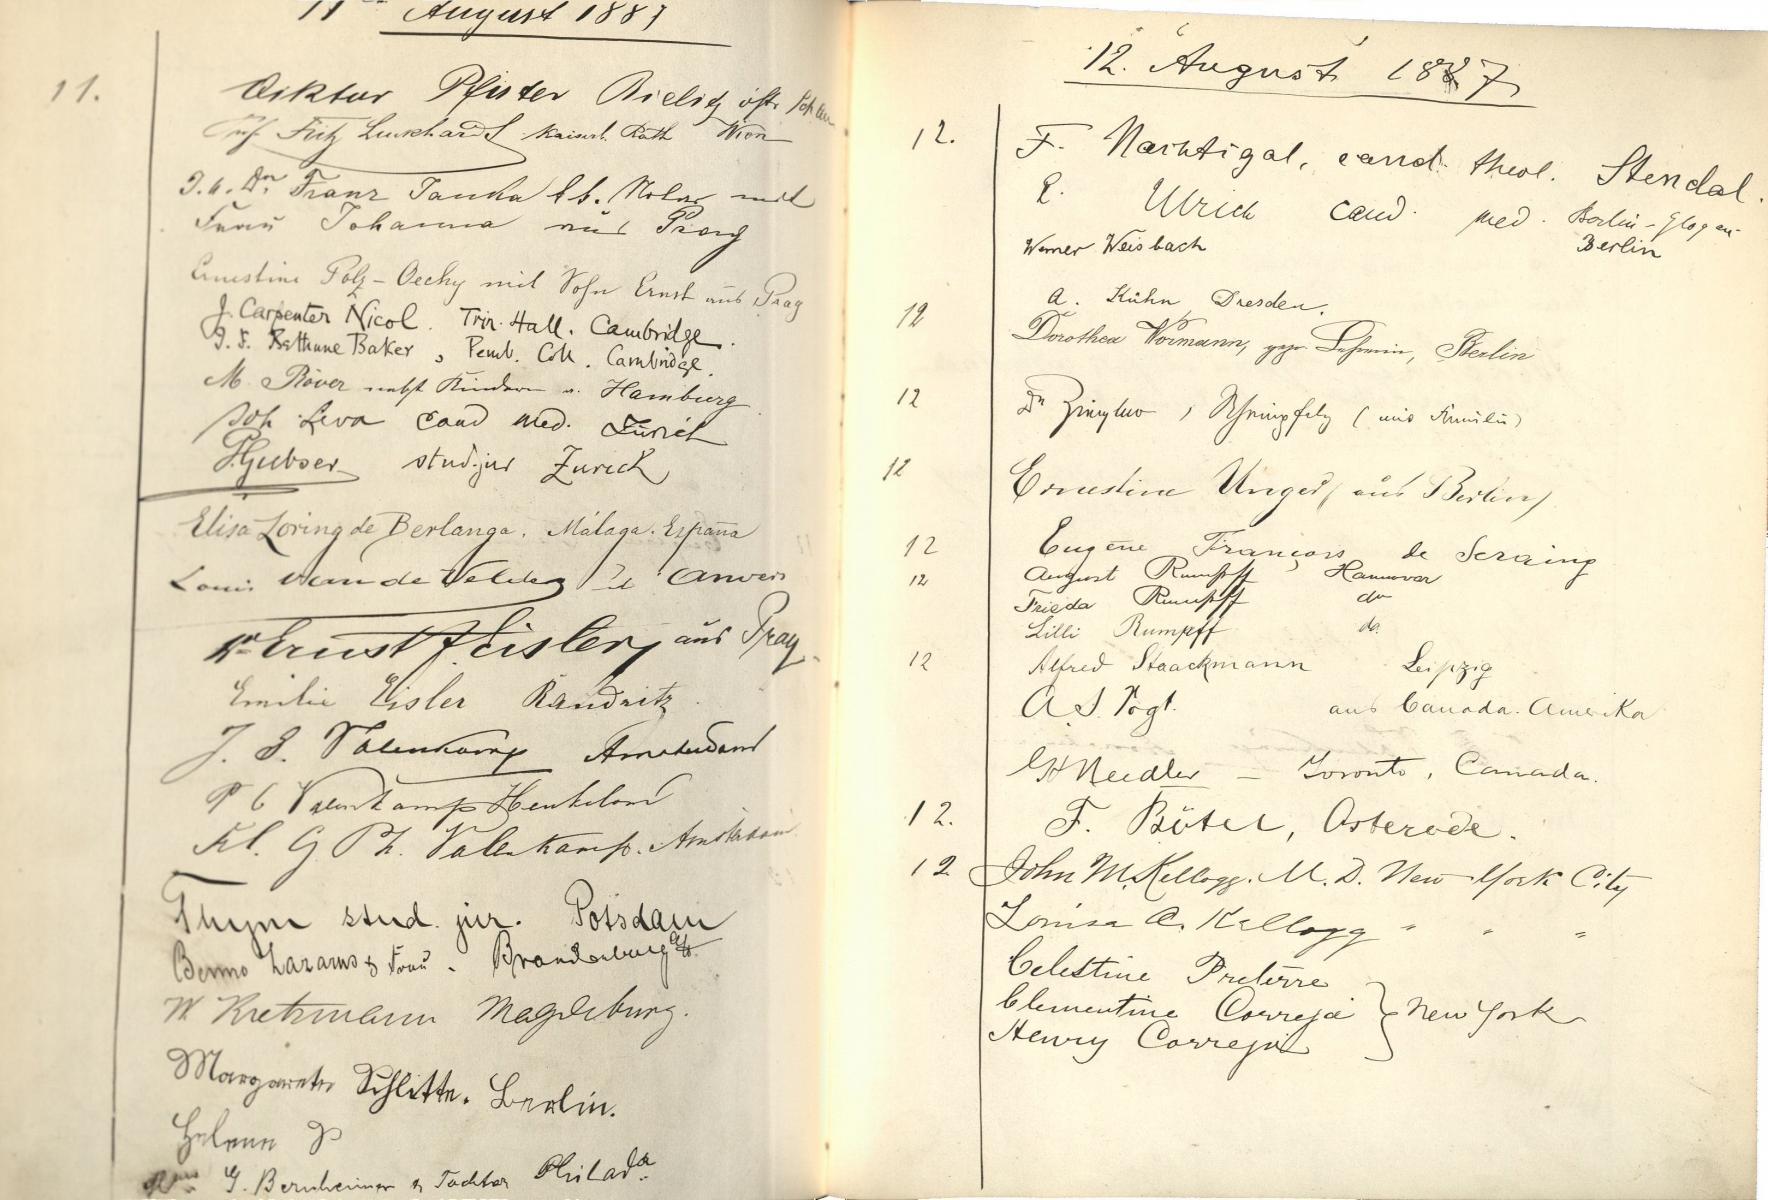 11 August 1887
11.
Viktor Pfister Bielitz östr.
Fritz Luckhardt kaiserl. Rath Wien
Dr. Franz Tanka Notar mit
Frau Johanna aus Prag
Ernestine Polz-Oechy mit Sohn Ernst aus Prag
J. Carpenter Nicol. Trin. Hall. Cambridge.
J. F. Bethune Baker, Pemb. Coll. Cambridge.
M. Röver nebst Kindern a. Hamburg
Joh. Leva cand med. Zürich
P. Gubser stud. jur Zürich
Elisa Loring de Berlanga. Málaga. España
Louis van de Velde Anvers
Dr Ernst Eisler, aus Prag.
Emilie Eisler Raudnitz.
J. S. Valenkamp Amsterdam
P C Valenkamp Henkelom
Kl. G Ph. Valenkamp. Amsterdam.
Thym stud. jur. Potsdam
Benno Lazarus & Frau. Brandenburg a/H.
W Kretzmann Magdeburg.
Margarete Schlitte. Berlin.
Helene
G. Bernheimer & Tochter Philada.
12. August 1887
12. F. Nachtigal, cand. theol. Stendal.
E. Ulrich cand. med. Berlin-Glogau-
Werner Weisbach Berlin
12 A. Kühn Dresden.
Dorothea Wormann, Berlin
12 Dr
12 Ernestine Unger (aus Berlin)
12 Eugène François de Seraing
12 August Rumpff Hannover
Frieda Rumpff do
Lilli Rumpff do.
12 Alfred Staackmann Leipzig
A. S. Vogt. aus Canada. Amerika
G H Needler — Toronto, Canada.
12. F. Bötel, Osterode.
12 John M. Kellogg. M. D. New York City
Louisa A. Kellogg " " "
Celestine Preterre
Clementine Correja } New York
Henry Correja